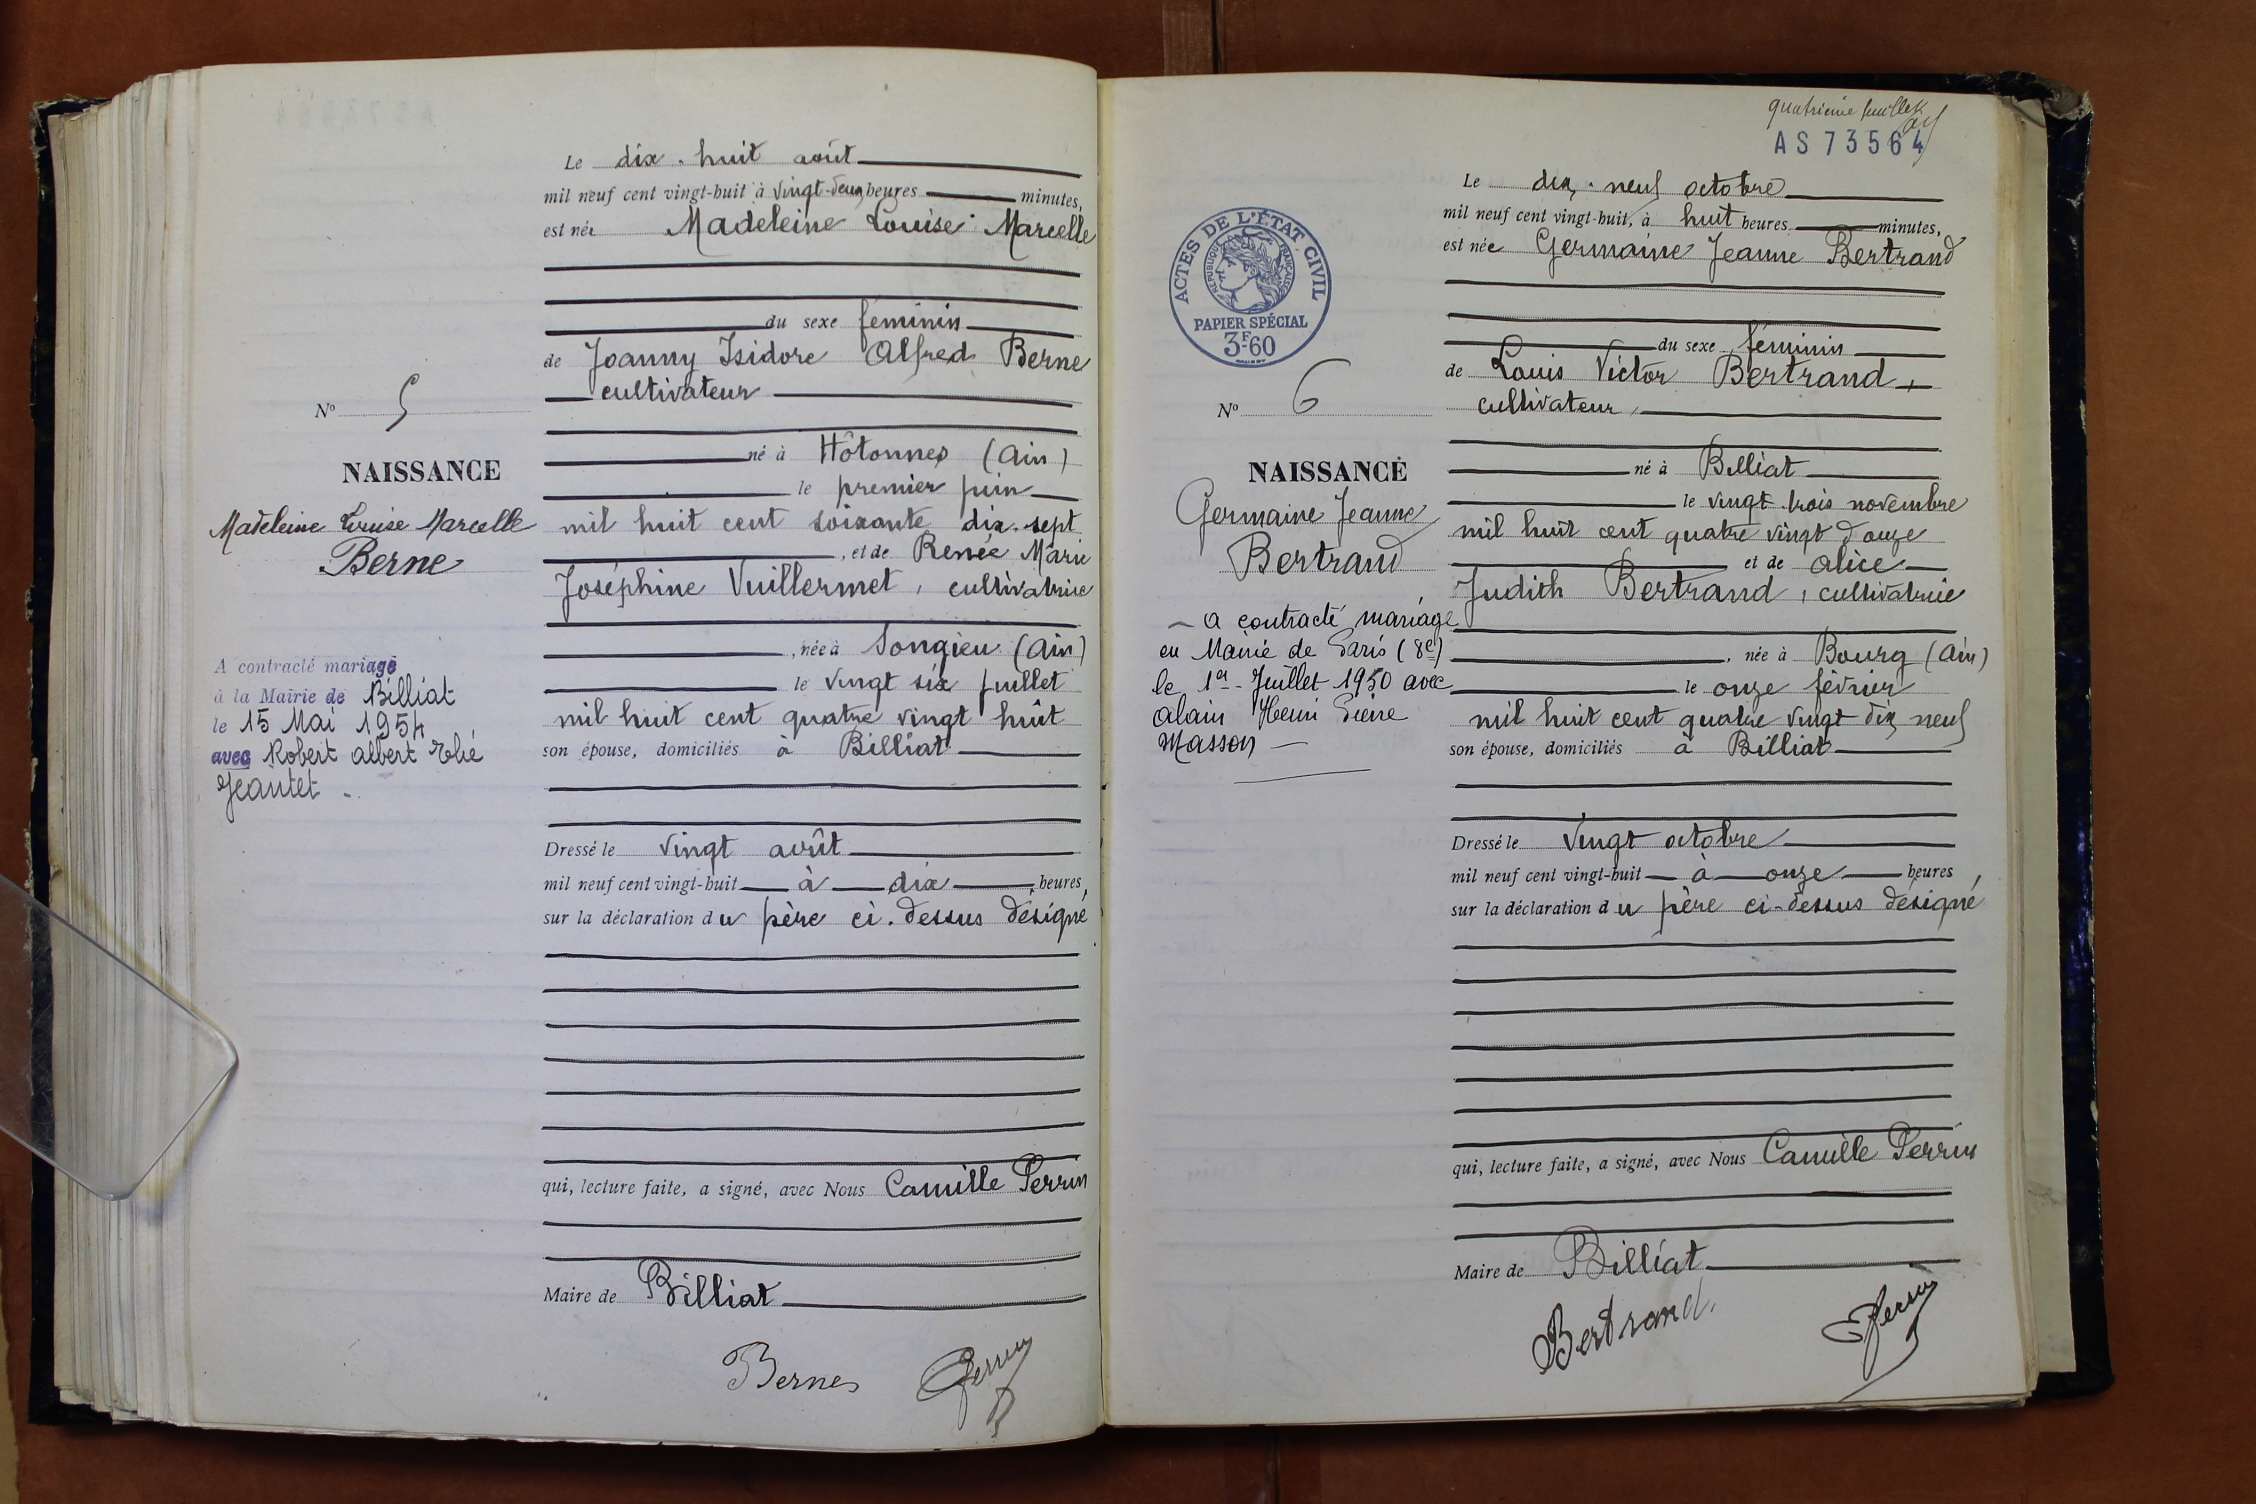 Le dix-huit août
mil neuf cent vingt-huit à vingt-deux heures minutes,
est née Madeleine Louise Marcelle
du sexe féminin
de Joanny Isidore Alfred Berne
cultivateur
né à Hôtonnes (Ain)
le premier juin
mil huit cent soixante dix-sept
, et de Renée Marie
Joséphine Vuillermet, cultivatrice
, née à Songieu (Ain)
le vingt six juillet
mil huit cent quatre vingt huit
son épouse, domiciliés à Billiat
Dressé le vingt août
mil neuf cent vingt-huit à dix heures,
sur la déclaration du père ci-dessus désigné
qui, lecture faite, a signé, avec Nous Camille Perrin
Maire de Billiat
Berne Perrin
No 5
NAISSANCE
Madeleine Louise Marcelle
Berne
A contracté mariage
à la Mairie de Billiat
le 15 Mai 1954
avec Robert Albert
Jeantet
quatrième feuillet
AS 73564
Le dix-neuf octobre
mil neuf cent vingt-huit, à huit heures minutes,
est née Germaine Jeanne Bertrand
du sexe féminin
de Louis Victor Bertrand,
cultivateur,
né à Billiat
le vingt-trois novembre
mil huit cent quatre vingt douze
et de Alice
Judith Bertrand, cultivatrice
, née à Bourg (Ain)
le onze février
mil huit cent quatre vingt dix neuf
son épouse, domiciliés à Billiat
Dressé le vingt octobre
mil neuf cent vingt-huit à onze heures,
sur la déclaration du père ci-dessus désigné
qui, lecture faite, a signé, avec Nous Camille Perrin
Maire de Billiat
Bertrand. Perrin
ACTES DE L'ÉTAT CIVIL
RÉPUBLIQUE FRANÇAISE
PAPIER SPÉCIAL
3F60
No 6
NAISSANCE
Germaine Jeanne
Bertrand
– a contracté mariage
en Mairie de Paris (8e)
le 1er Juillet 1950 avec
Alain Henri Pierre
Masson –